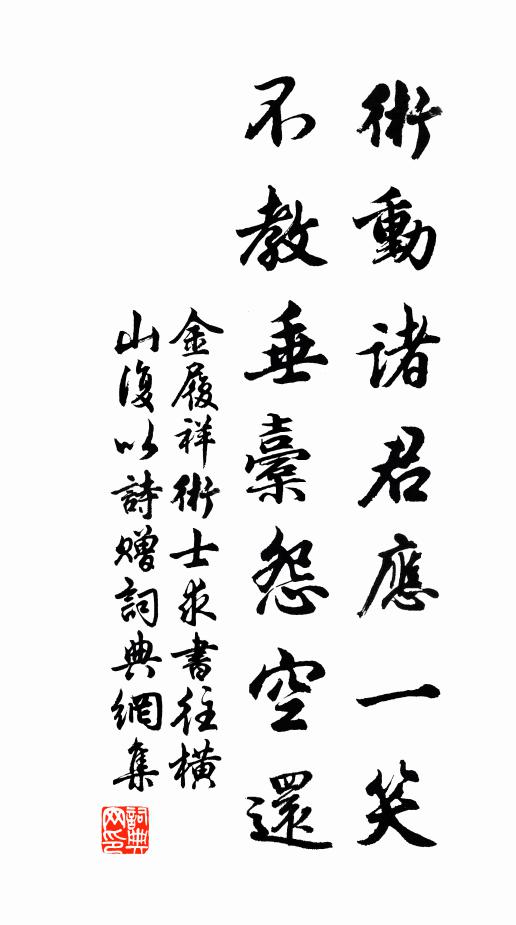 術動諸君應一笑
不教垂橐怨空還
金履祥術士求書往橫
山復以詩贈詞典網集
詞典网印